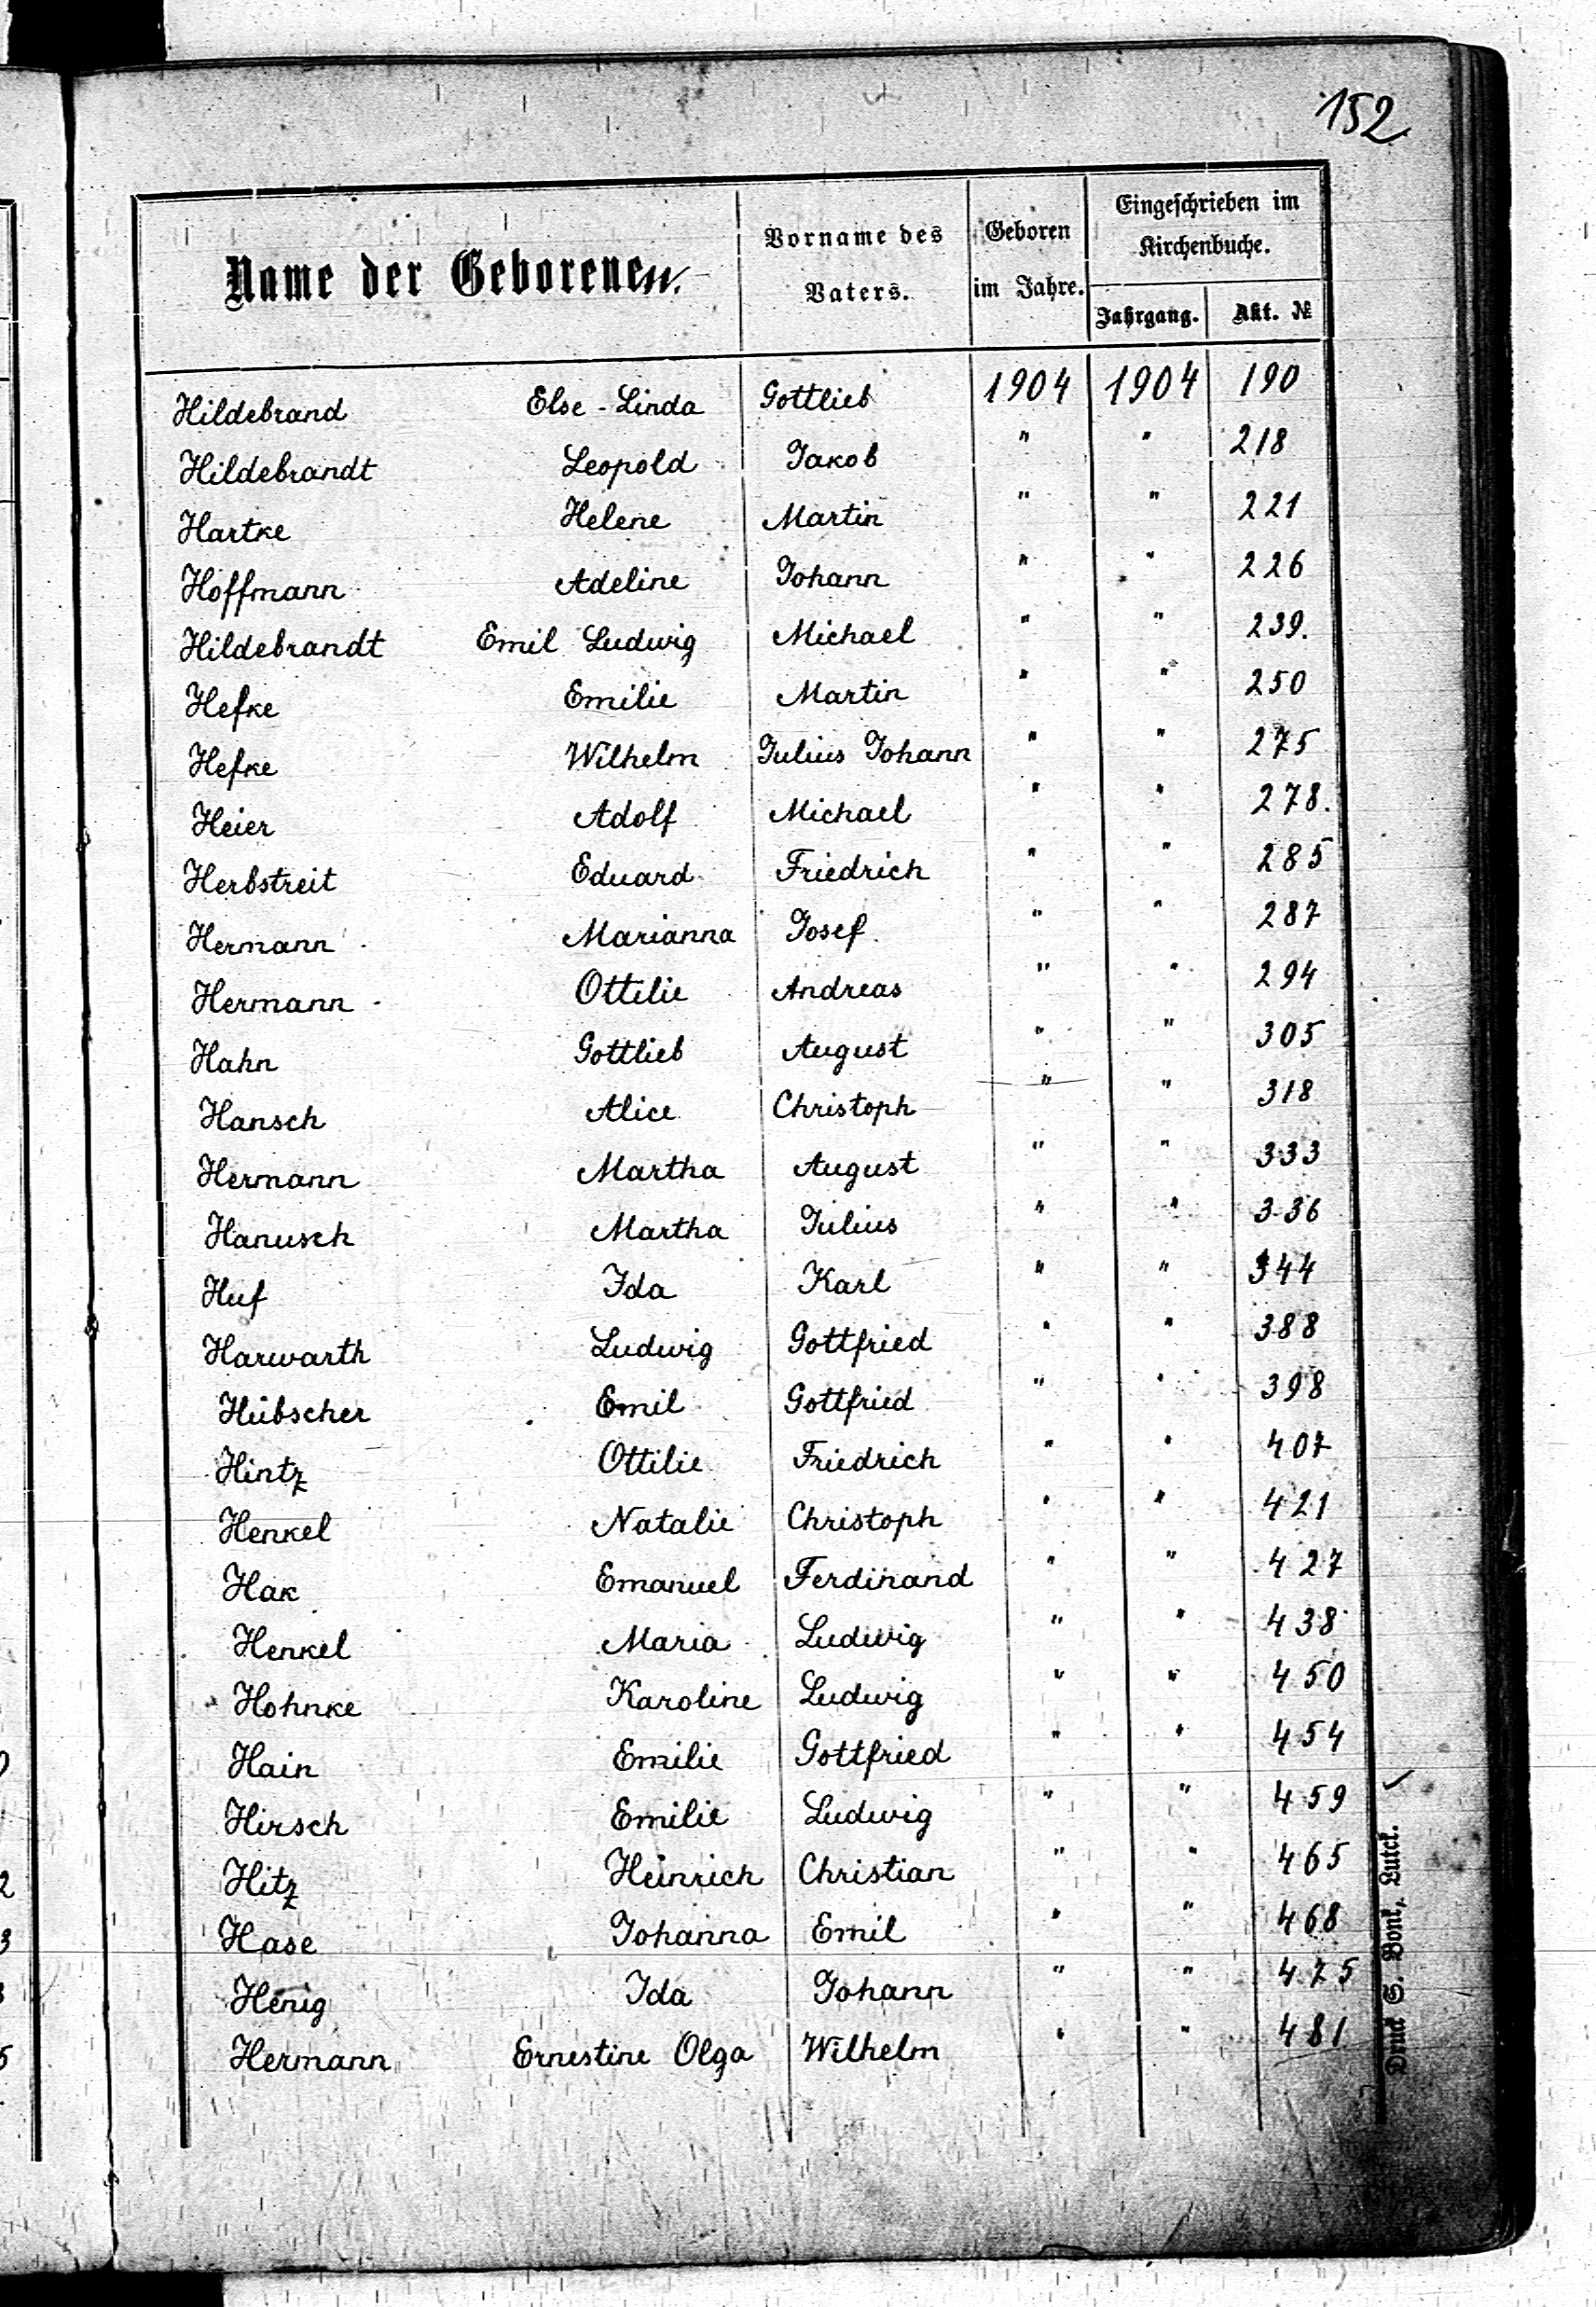 152
Name der Geborenen.
Vorname des Vaters.
Geboren im Jahre.
Eingeschrieben im Kirchenbuche.
Jahrgang. Akt. №
Hildebrand Else-Linda Gottlieb 1904 1904 190
Hildebrandt Leopold Jakob " " 218
Hartke Helene Martin " " 221
Hoffmann Adeline Johann " " 226
Hildebrandt Emil Ludwig Michael " " 239.
Hefke Emilie Martin " " 250
Hefke Wilhelm Julius Johann " " 275
Heier Adolf Michael " " 278.
Herbstreit Eduard Friedrich " " 285
Hermann Marianna Josef " " 287
Hermann Ottilie Andreas " " 294
Hahn Gottlieb August " " 305
Hansch Alice Christoph " " 318
Hermann Martha August " " 333
Hanusch Martha Julius " " 336
Huf Ida Karl " " 344
Harwarth Ludwig Gottfried " " 388
Hübscher Emil Gottfried " " 398
Hintz Ottilie Friedrich " " 407
Henkel Natalie Christoph " " 421
Hak Emanuel Ferdinand " " 427
Henkel Maria Ludwig " " 438
Hohnke Karoline Ludwig " " 450
Hain Emilie Gottfried " " 454
Hirsch Emilie Ludwig " " 459
Hitz Heinrich Christian " " 465
Hase Johanna Emil " " 468
Henig Ida Johann " " 475
Hermann Ernestine Olga Wilhelm " " 481
Druck S. Bonk, Lutck.